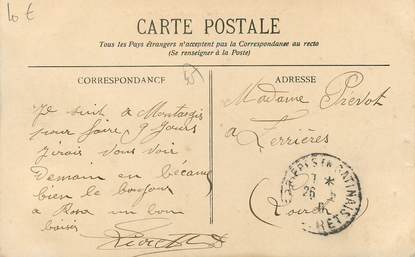 10 €
CARTE POSTALE
Tous les Pays étrangers n'acceptent pas la Correspondance au recto
(Se renseigner à la Poste)
CORRESPONDANCE
ADRESSE
Je suit a Montargis
pour faire 9 jours
jirais vous voir
Demain en bécane
bien le bonjour
a Rosa un bon
baiser
Madame Prévot
a Ferrières
Loiret
FERRIÈRES EN GATINAIS
26
LOIRET